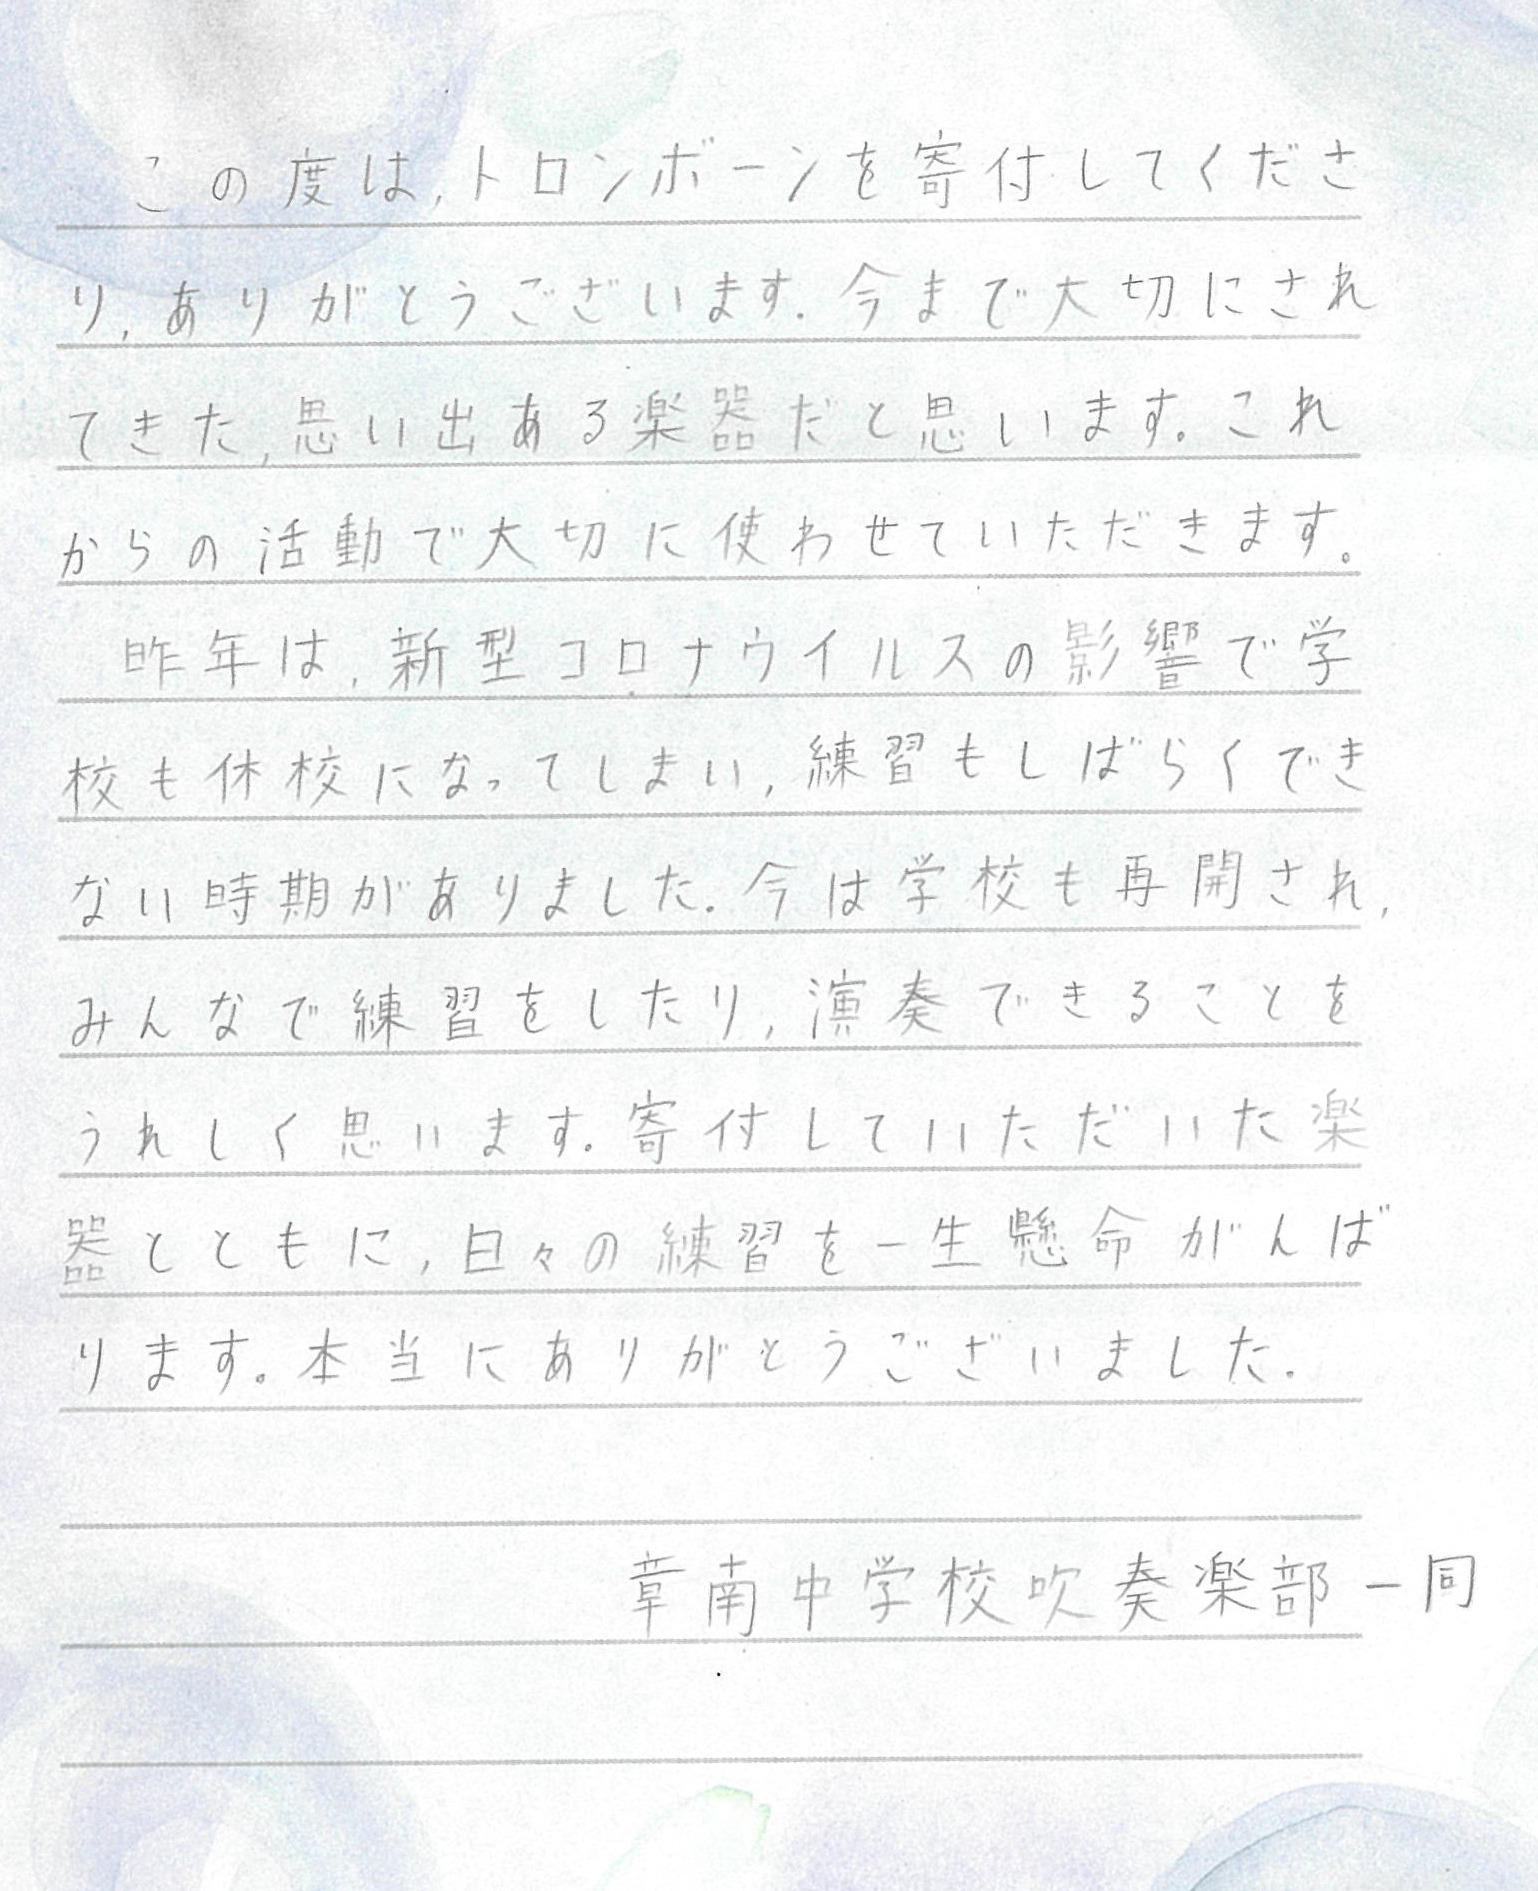 この度は,トロンボーンを寄付してくださ
り,ありがとうございます.今まで大切にされ
てきた,思い出ある楽器だと思います。これ
からの活動で大切に使わせていただきます。
昨年は,新型コロナウイルスの影響で学
校も休校になってしまい,練習もしばらくでき
ない時期がありました.今は学校も再開され,
みんなで練習をしたり,演奏できることを
うれしく思います.寄付していただいた楽
器とともに,日々の練習を一生懸命がんば
ります。本当にありがとうございました.
章南中学校吹奏楽部一同